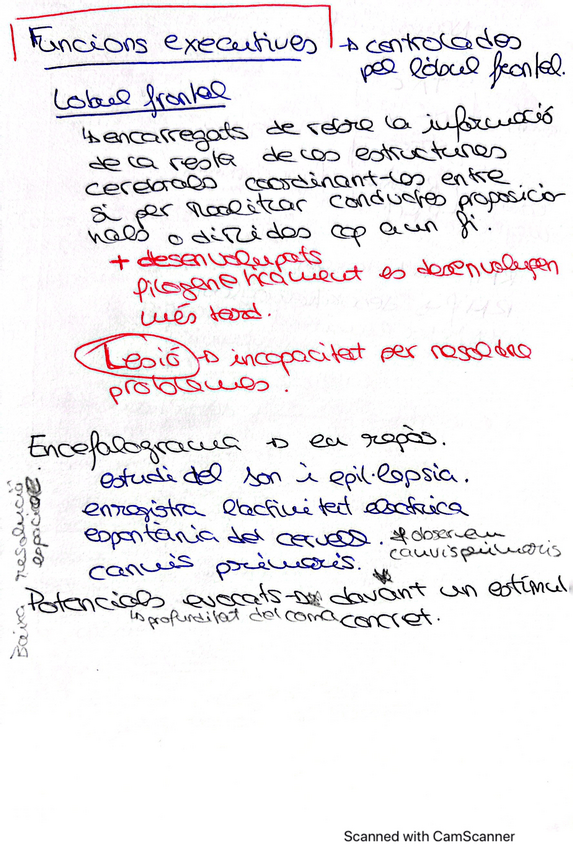 Funcions executives → controlades
pel lòbul frontal.
Lobul frontal
↳ encarregats de rebre la informació
de la resta de les estructures
cerebrals coordinant-les entre
si per realitzar conductes proposicio-
nals o dirigides cap a un fi.
+ desenvolupats
filogenèticament es desenvolupen
més tard.
Lesió → incapacitat per resoldre
problemes.
Encefalograma → en repòs.
estudi del son i epil·lepsia.
enregistra l'activitat elèctrica
espontània del cervell. * observem
canvis primaris
canvis primaris.
Potencials evocats → davant un estímul
↳ profunditat del coma concret.
Baixa resolució
espacial.
Scanned with CamScanner